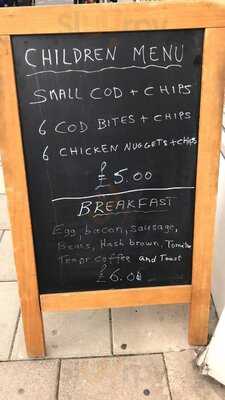 CHILDREN MENU
SMALL COD + CHIPS
6 COD BITES + CHIPS
6 CHICKEN NUGGETS + CHIPS
£5.00
BREAKFAST
Egg, bacon, sausage,
Beans, Hash brown, Tomatoe
Tea or coffee and Toast
£6.00